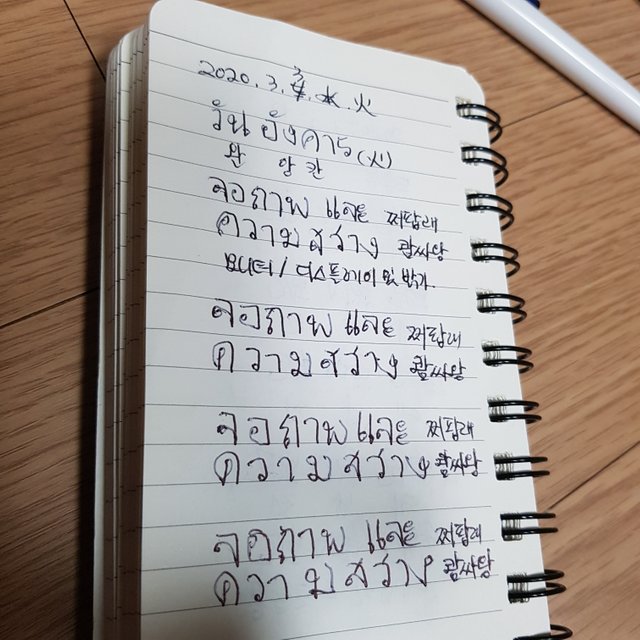 2020. 3. 3. 火
วันอังคาร (火)
완 앙칸
จอภาพ และ 쩌팝래
ความสว่าง 쾀싸왕
모니터/디스플레이 및 밝기.
จอภาพ และ 쩌팝래
ความสว่าง 쾀싸왕
จอภาพ และ 쩌팝래
ความสว่าง 쾀싸왕
จอภาพ และ 쩌팝래
ความสว่าง 쾀싸왕